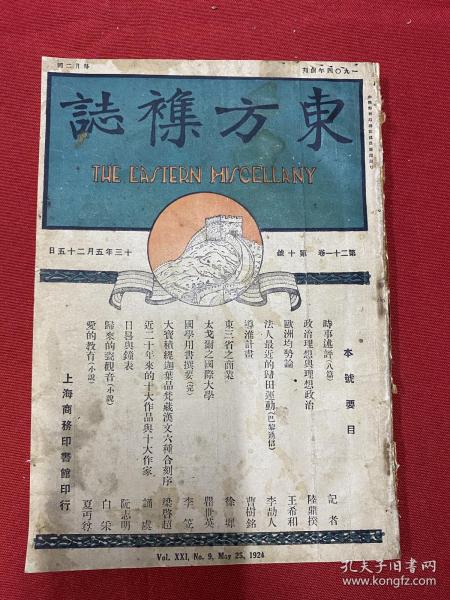 一九〇四年創刊
每月二冊
東方雜誌
THE EASTERN MISCELLANY
第二十一卷 第十號
十三年五月二十五日
本號要目
時事述評(八篇) 記者
政治理想與理想政治 陸鼎揆
歐洲均勢論 王希和
法人最近的歸田運動(巴黎通信) 李劼人
導淮計畫 曹樹銘
東三省之商業 徐墀
太戈爾之國際大學 瞿世英
國學用書撰要(完) 李笠
大寶積經迦葉品梵藏漢文六種合刻序 梁啓超
近二十年來的十大作品與十大作家 誦虞
日晷與鐘表 阮志明
歸來的瓷觀音(小說) 白采
愛的教育(小說) 夏丏尊
上海商務印書館印行
Vol. XXI, No. 9, May 25, 1924
孔夫子旧书网